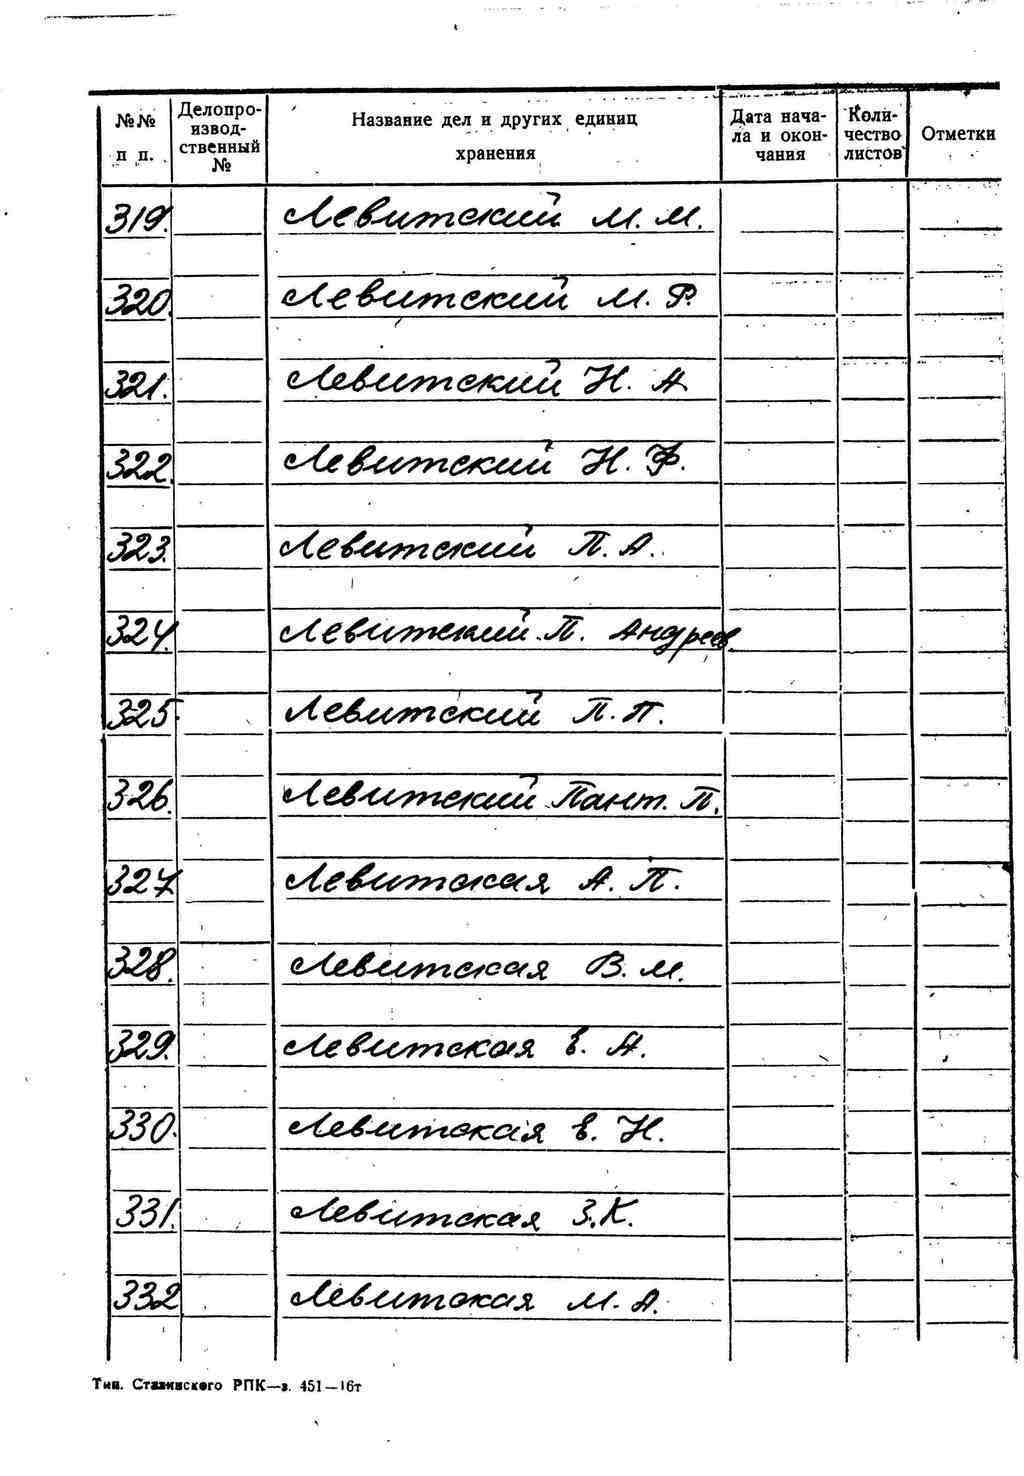 №№ п п.
Делопро-
извод-
ственный
№
Название дел и других единиц
хранения
Дата нача-
ла и окон-
чания
Коли-
чество
листов
Отметки
319. Левитский М. М.
320. Левитский М. Р.
321. Левитский Н. А
322. Левитский Н. Ф.
323. Левитский П. А.
324. Левитский П. Андреев.
325. Левитский П. П.
326. Левитский Пант. П.
327 Левитская А. П.
328. Левитская В. М.
329. Левитская Е. А.
330. Левитская Е. Н.
331. Левитская З. К.
332 Левитская М. А.
Тип. Сталинского РПК—з. 451—16т